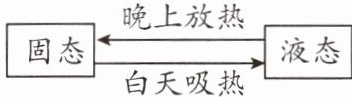 晚上放热
固态
液态
白天吸热